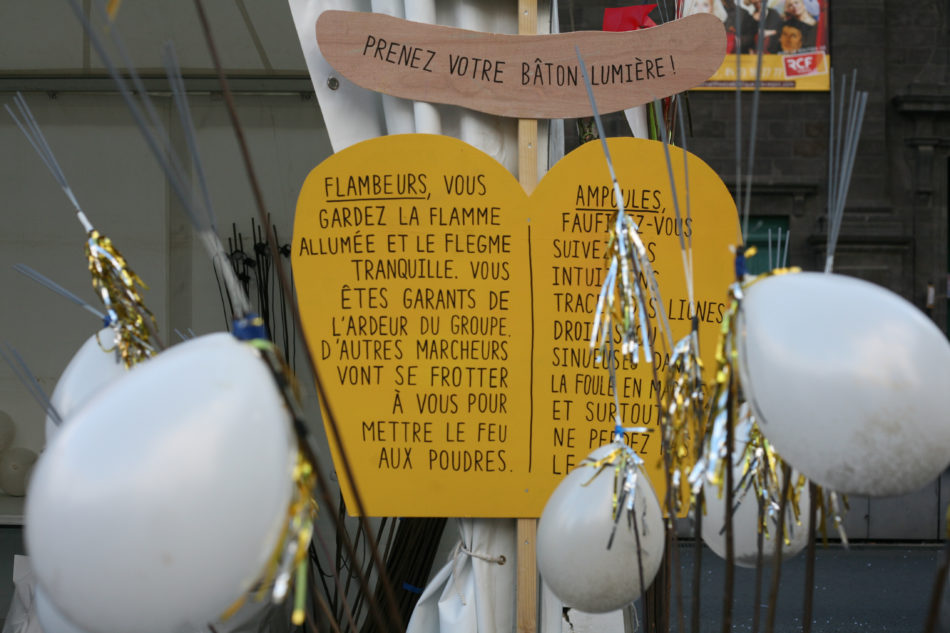 PRENEZ VOTRE BÂTON LUMIÈRE !
RCF
FLAMBEURS, VOUS
GARDEZ LA FLAMME
ALLUMÉE ET LE FLEGME
TRANQUILLE. VOUS
ÊTES GARANTS DE
L'ARDEUR DU GROUPE.
D'AUTRES MARCHEURS
VONT SE FROTTER
À VOUS POUR
METTRE LE FEU
AUX POUDRES.
AMPOULES,
FAUFILEZ-VOUS
SUIVEZ
TRACEZ LIGNES
SINUEUSES DANS
LA FOULE EN
ET SURTOUT
NE PERDEZ